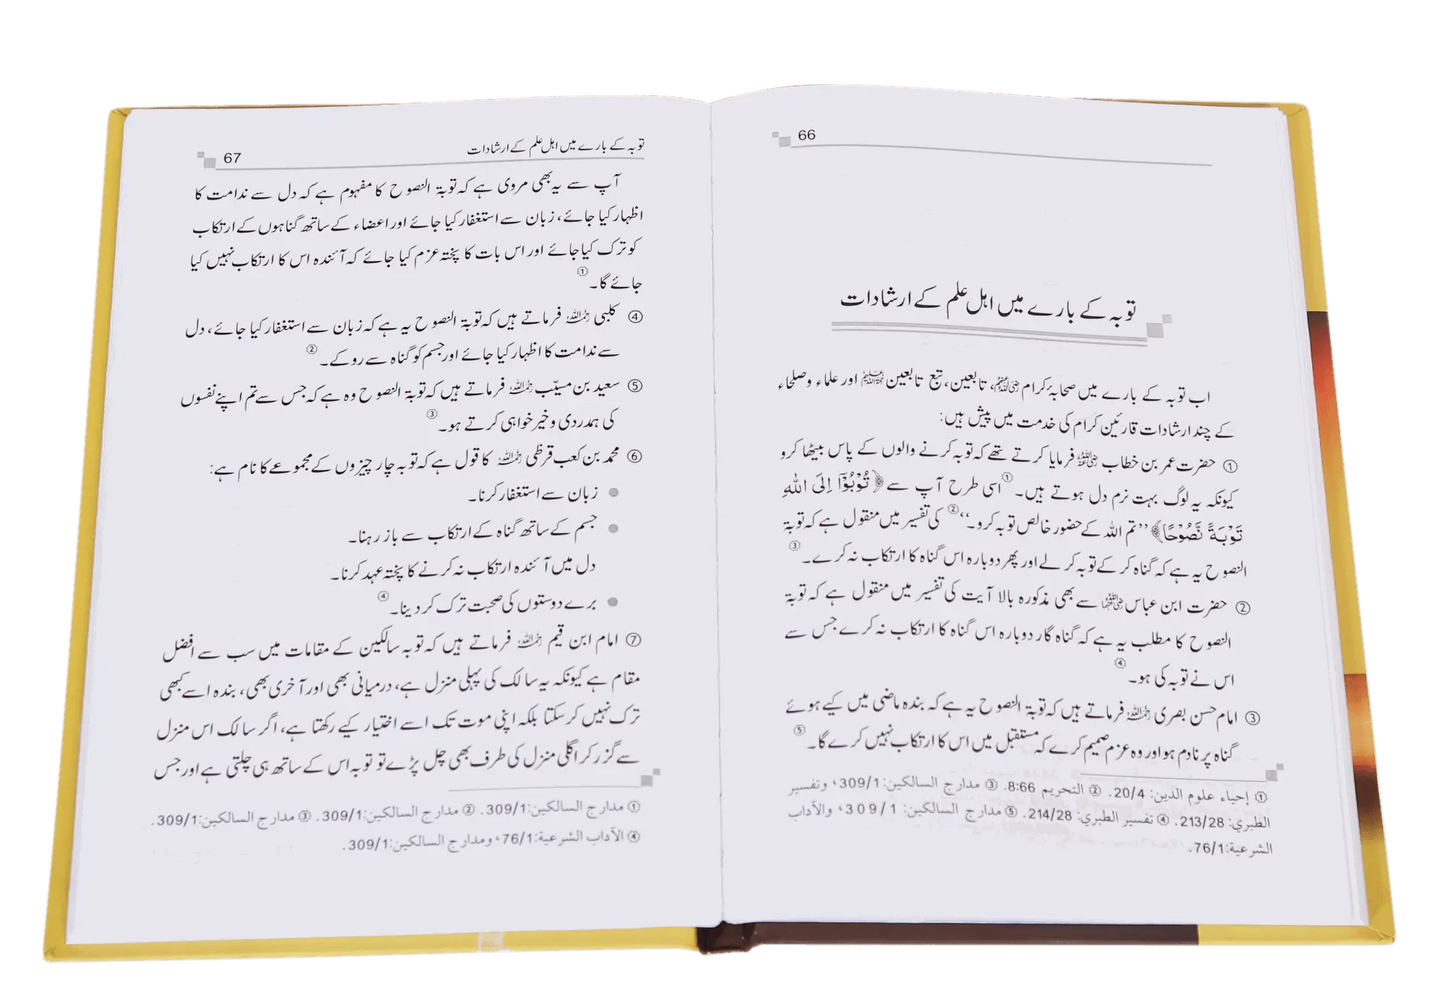 66
توبہ کے بارے میں اہل علم کے ارشادات
اب توبہ کے بارے میں صحابۂ کرام رضی اللہ عنہم، تابعین، تبع تابعین رحمہم اللہ اور علماء و صلحاء
کے چند ارشادات قارئین کرام کی خدمت میں پیش ہیں:
① حضرت عمر بن خطاب رضی اللہ عنہ فرمایا کرتے تھے کہ توبہ کرنے والوں کے پاس بیٹھا کرو
کیونکہ یہ لوگ بہت نرم دل ہوتے ہیں۔① اسی طرح آپ سے ﴿تُوْبُوْٓا اِلَى اللّٰهِ
تَوْبَةً نَّصُوْحًا﴾ ’’تم اللہ کے حضور خالص توبہ کرو۔‘‘② کی تفسیر میں منقول ہے کہ توبۃ
النصوح یہ ہے کہ گناہ کر کے توبہ کر لے اور پھر دوبارہ اس گناہ کا ارتکاب نہ کرے۔③
② حضرت ابن عباس رضی اللہ عنہما سے بھی مذکورہ بالا آیت کی تفسیر میں منقول ہے کہ توبۃ
النصوح کا مطلب یہ ہے کہ گناہ گار دوبارہ اس گناہ کا ارتکاب نہ کرے جس سے
اس نے توبہ کی ہو۔④
③ امام حسن بصری رحمہ اللہ فرماتے ہیں کہ توبۃ النصوح یہ ہے کہ بندہ ماضی میں کیے ہوئے
گناہ پر نادم ہو اور وہ عزم صمیم کرے کہ مستقبل میں اس کا ارتکاب نہیں کرے گا۔⑤
① إحياء علوم الدين: 20/4. ② التحريم 8:66. ③ مدارج السالكين: 309/1، وتفسير
الطبري: 213/28. ④ تفسير الطبري: 214/28. ⑤ مدارج السالكين: 309/1، والآداب
الشرعية: 76/1.
67 توبہ کے بارے میں اہل علم کے ارشادات
آپ سے یہ بھی مروی ہے کہ توبۃ النصوح کا مفہوم ہے کہ دل سے ندامت کا
اظہار کیا جائے، زبان سے استغفار کیا جائے اور اعضاء کے ساتھ گناہوں کے ارتکاب
کو ترک کیا جائے اور اس بات کا پختہ عزم کیا جائے کہ آئندہ اس کا ارتکاب نہیں کیا
جائے گا۔①
④ کلبی رحمہ اللہ فرماتے ہیں کہ توبۃ النصوح یہ ہے کہ زبان سے استغفار کیا جائے، دل
سے ندامت کا اظہار کیا جائے اور جسم کو گناہ سے روکے۔②
⑤ سعید بن مسیّب رحمہ اللہ فرماتے ہیں کہ توبۃ النصوح وہ ہے کہ جس سے تم اپنے نفسوں
کی ہمدردی و خیر خواہی کرتے ہو۔③
⑥ محمد بن کعب قرظی رحمہ اللہ کا قول ہے کہ توبہ چار چیزوں کے مجموعے کا نام ہے:
● زبان سے استغفار کرنا۔
● جسم کے ساتھ گناہ کے ارتکاب سے باز رہنا۔
دل میں آئندہ ارتکاب نہ کرنے کا پختہ عہد کرنا۔
● برے دوستوں کی صحبت ترک کر دینا۔④
⑦ امام ابن قیم رحمہ اللہ فرماتے ہیں کہ توبہ سالکین کے مقامات میں سب سے افضل
مقام ہے کیونکہ یہ سالک کی پہلی منزل ہے، درمیانی بھی اور آخری بھی، بندہ اسے کبھی
ترک نہیں کر سکتا بلکہ اپنی موت تک اسے اختیار کیے رکھتا ہے، اگر سالک اس منزل
سے گزر کر اگلی منزل کی طرف بھی چل پڑے تو توبہ اس کے ساتھ ہی چلتی ہے اور جس
① مدارج السالكين: 309/1. ② مدارج السالكين: 309/1. ③ مدارج السالكين: 309/1.
④ الآداب الشرعية: 76/1، ومدارج السالكين: 309/1.